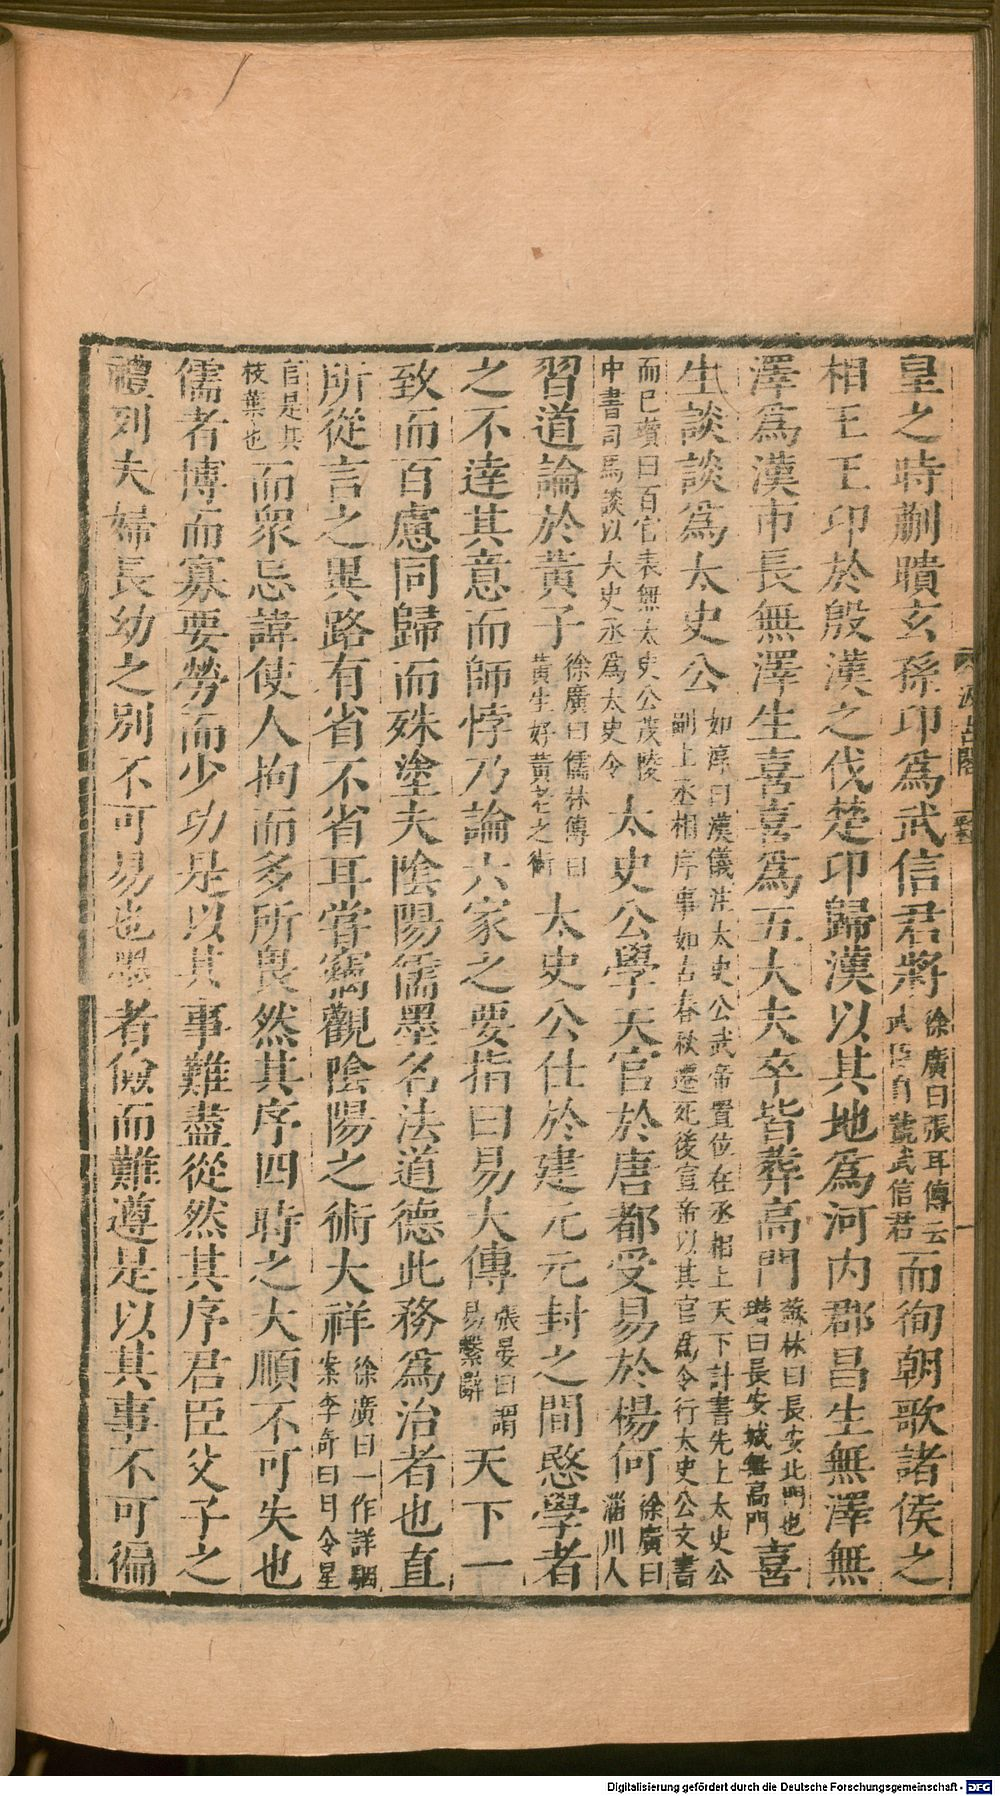 皇之時蒯聵玄孫卬爲武信君將徐廣曰張耳傳云武臣自號武信君而徇朝歌諸侯之
相王王卬於殷漢之伐楚卬歸漢以其地爲河內郡昌生無澤無
澤爲漢市長無澤生喜喜爲五大夫卒皆葬高門蘇林曰長安北門也瓚曰長安城無高門喜
生談談爲太史公如淳曰漢儀注太史公武帝置位在丞相上天下計書先上太史公副上丞相序事如古春秋遷死後宣帝以其官爲令行太史公文書
而已瓚曰百官表無太史公茂陵中書司馬談以太史丞爲太史令太史公學天官於唐都受易於楊何徐廣曰淄川人
習道論於黃子徐廣曰儒林傳曰黃生好黃老之術太史公仕於建元元封之間愍學者
之不達其意而師悖乃論六家之要指曰易大傳張晏曰謂易繫辭天下一
致而百慮同歸而殊塗夫陰陽儒墨名法道德此務爲治者也直
所從言之異路有省不省耳嘗竊觀陰陽之術大祥徐廣曰一作詳駰案李奇曰月令星
官是其枝葉也而衆忌諱使人拘而多所畏然其序四時之大順不可失也
儒者博而寡要勞而少功是以其事難盡從然其序君臣父子之
禮列夫婦長幼之別不可易也墨者儉而難遵是以其事不可徧
Digitalisierung gefördert durch die Deutsche Forschungsgemeinschaft - DFG